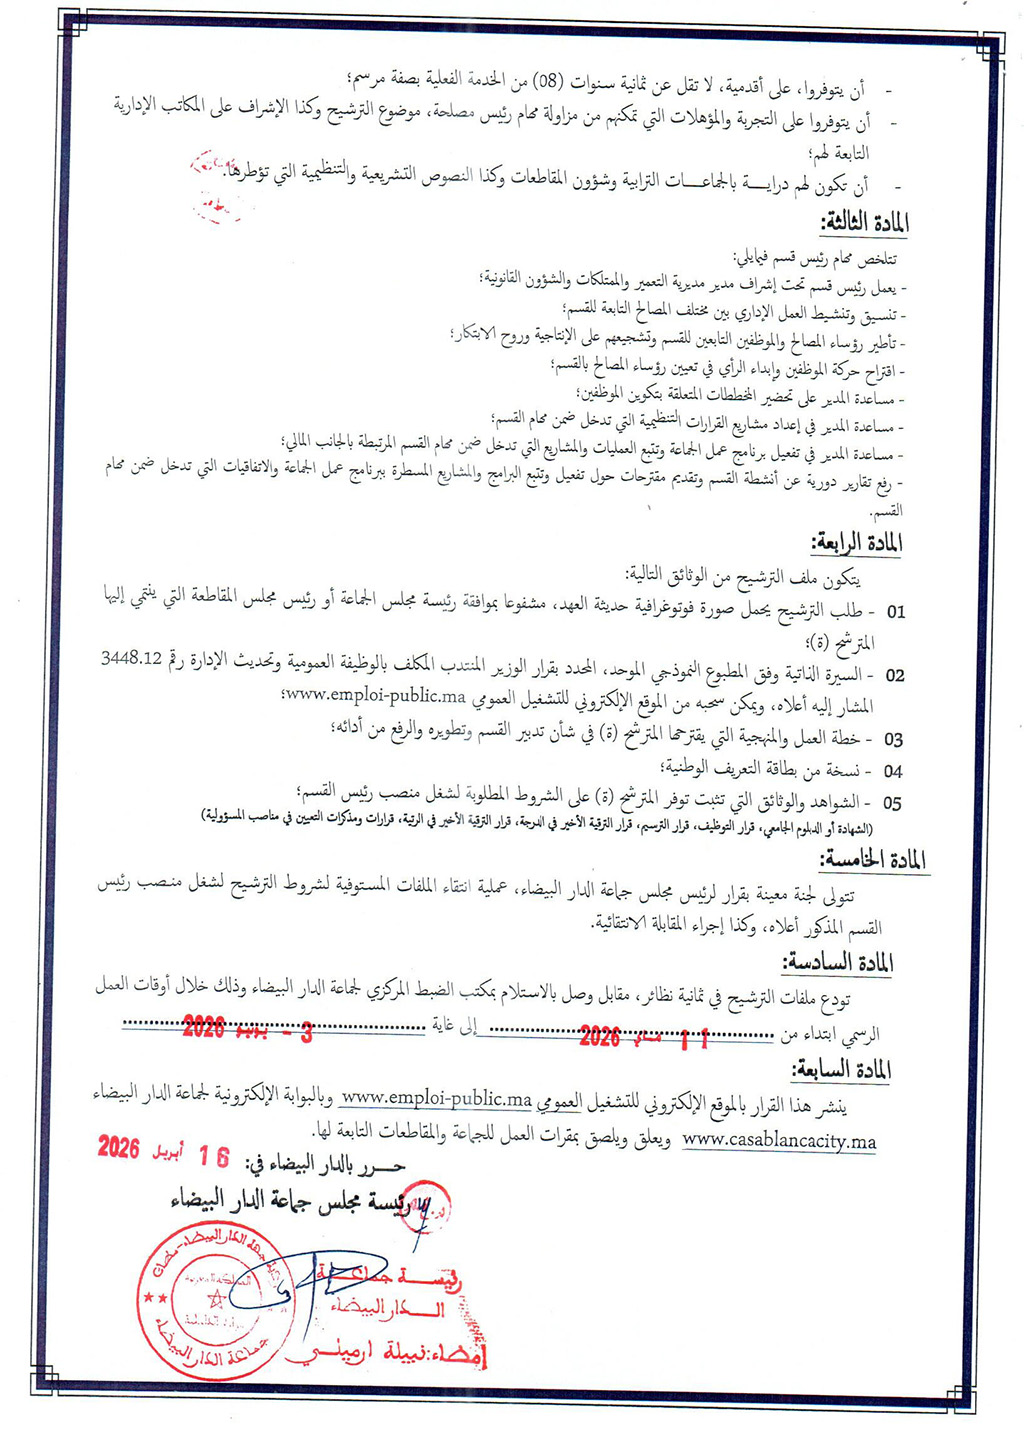 - أن يتوفروا، على أقدمية، لا تقل عن ثمانية سنوات (08) من الخدمة الفعلية بصفة مرسم؛
- أن يتوفروا على التجربة والمؤهلات التي تمكنهم من مزاولة مهام رئيس مصلحة، موضوع الترشيح وكذا الإشراف على المكاتب الإدارية
التابعة لهم؛
- أن تكون لهم درايـــة بالجماعـــات الترابية وشؤون المقاطعات وكذا النصوص التشريعية والتنظيمية التي تؤطرها.
المادة الثالثة:
تتلخص مهام رئيس قسم فيمايلي:
- يعمل رئيس قسم تحت إشراف مدير مديرية التعمير والممتلكات والشؤون القانونية؛
- تنسيق وتنشيط العمل الإداري بين مختلف المصالح التابعة للقسم؛
- تأطير رؤساء المصالح والموظفين التابعين للقسم وتشجيعهم على الإنتاجية وروح الابتكار؛
- اقتراح حركة الموظفين وإبداء الرأي في تعيين رؤساء المصالح بالقسم؛
- مساعدة المدير على تحضير المخططات المتعلقة بتكوين الموظفين؛
- مساعدة المدير في إعداد مشاريع القرارات التنظيمية التي تدخل ضمن مهام القسم؛
- مساعدة المدير في تفعيل برنامج عمل الجماعة وتتبع العمليات والمشاريع التي تدخل ضمن مهام القسم المرتبطة بالجانب المالي؛
- رفع تقارير دورية عن أنشطة القسم وتقديم مقترحات حول تفعيل وتتبع البرامج والمشاريع المسطرة ببرنامج عمل الجماعة والاتفاقيات التي تدخل ضمن مهام
القسم.
المادة الرابعة:
يتكون ملف الترشيح من الوثائق التالية:
01 - طلب الترشيح يحمل صورة فوتوغرافية حديثة العهد، مشفوعا بموافقة رئيسة مجلس الجماعة أو رئيس مجلس المقاطعة التي ينتمي إليها
المترشح (ة)؛
02 - السيرة الذاتية وفق المطبوع النموذجي الموحد، المحدد بقرار الوزير المنتدب المكلف بالوظيفة العمومية وتحديث الإدارة رقم 3448.12
المشار إليه أعلاه، ويمكن سحبه من الموقع الإلكتروني للتشغيل العمومي www.emploi-public.ma؛
03 - خطة العمل والمنهجية التي يقترحها المترشح (ة) في شأن تدبير القسم وتطويره والرفع من أدائه؛
04 - نسخة من بطاقة التعريف الوطنية؛
05 - الشواهد والوثائق التي تثبت توفر المترشح (ة) على الشروط المطلوبة لشغل منصب رئيس القسم؛
(الشهادة أو الدبلوم الجامعي، قرار التوظيف، قرار الترسيم، قرار الترقية الأخير في الدرجة، قرار الترقية الأخير في الرتبة، قرارات ومذكرات التعيين في مناصب المسؤولية)
المادة الخامسة:
تتولى لجنة معينة بقرار لرئيس مجلس جماعة الدار البيضاء، عملية انتقاء الملفات المستوفية لشروط الترشيح لشغل منصب رئيس
القسم المذكور أعلاه، وكذا إجراء المقابلة الانتقائية.
المادة السادسة:
تودع ملفات الترشيح في ثمانية نظائر، مقابل وصل بالاستلام بمكتب الضبط المركزي لجماعة الدار البيضاء وذلك خلال أوقات العمل
الرسمي ابتداء من 11 ماي 2026 إلى غاية 3 - يونيو 2026
المادة السابعة:
ينشر هذا القرار بالموقع الإلكتروني للتشغيل العمومي www.emploi-public.ma وبالبوابة الإلكترونية لجماعة الدار البيضاء
www.casablancacity.ma ويعلق ويلصق بمقرات العمل للجماعة والمقاطعات التابعة لها.
حـــرر بالدار البيضاء في: 16 أبريل 2026
رئيسة مجلس جماعة الدار البيضاء
رئيسة جماعة
الدار البيضاء
إمضاء: نبيلة ارميلي
المملكة المغربية
جماعة الدار البيضاء